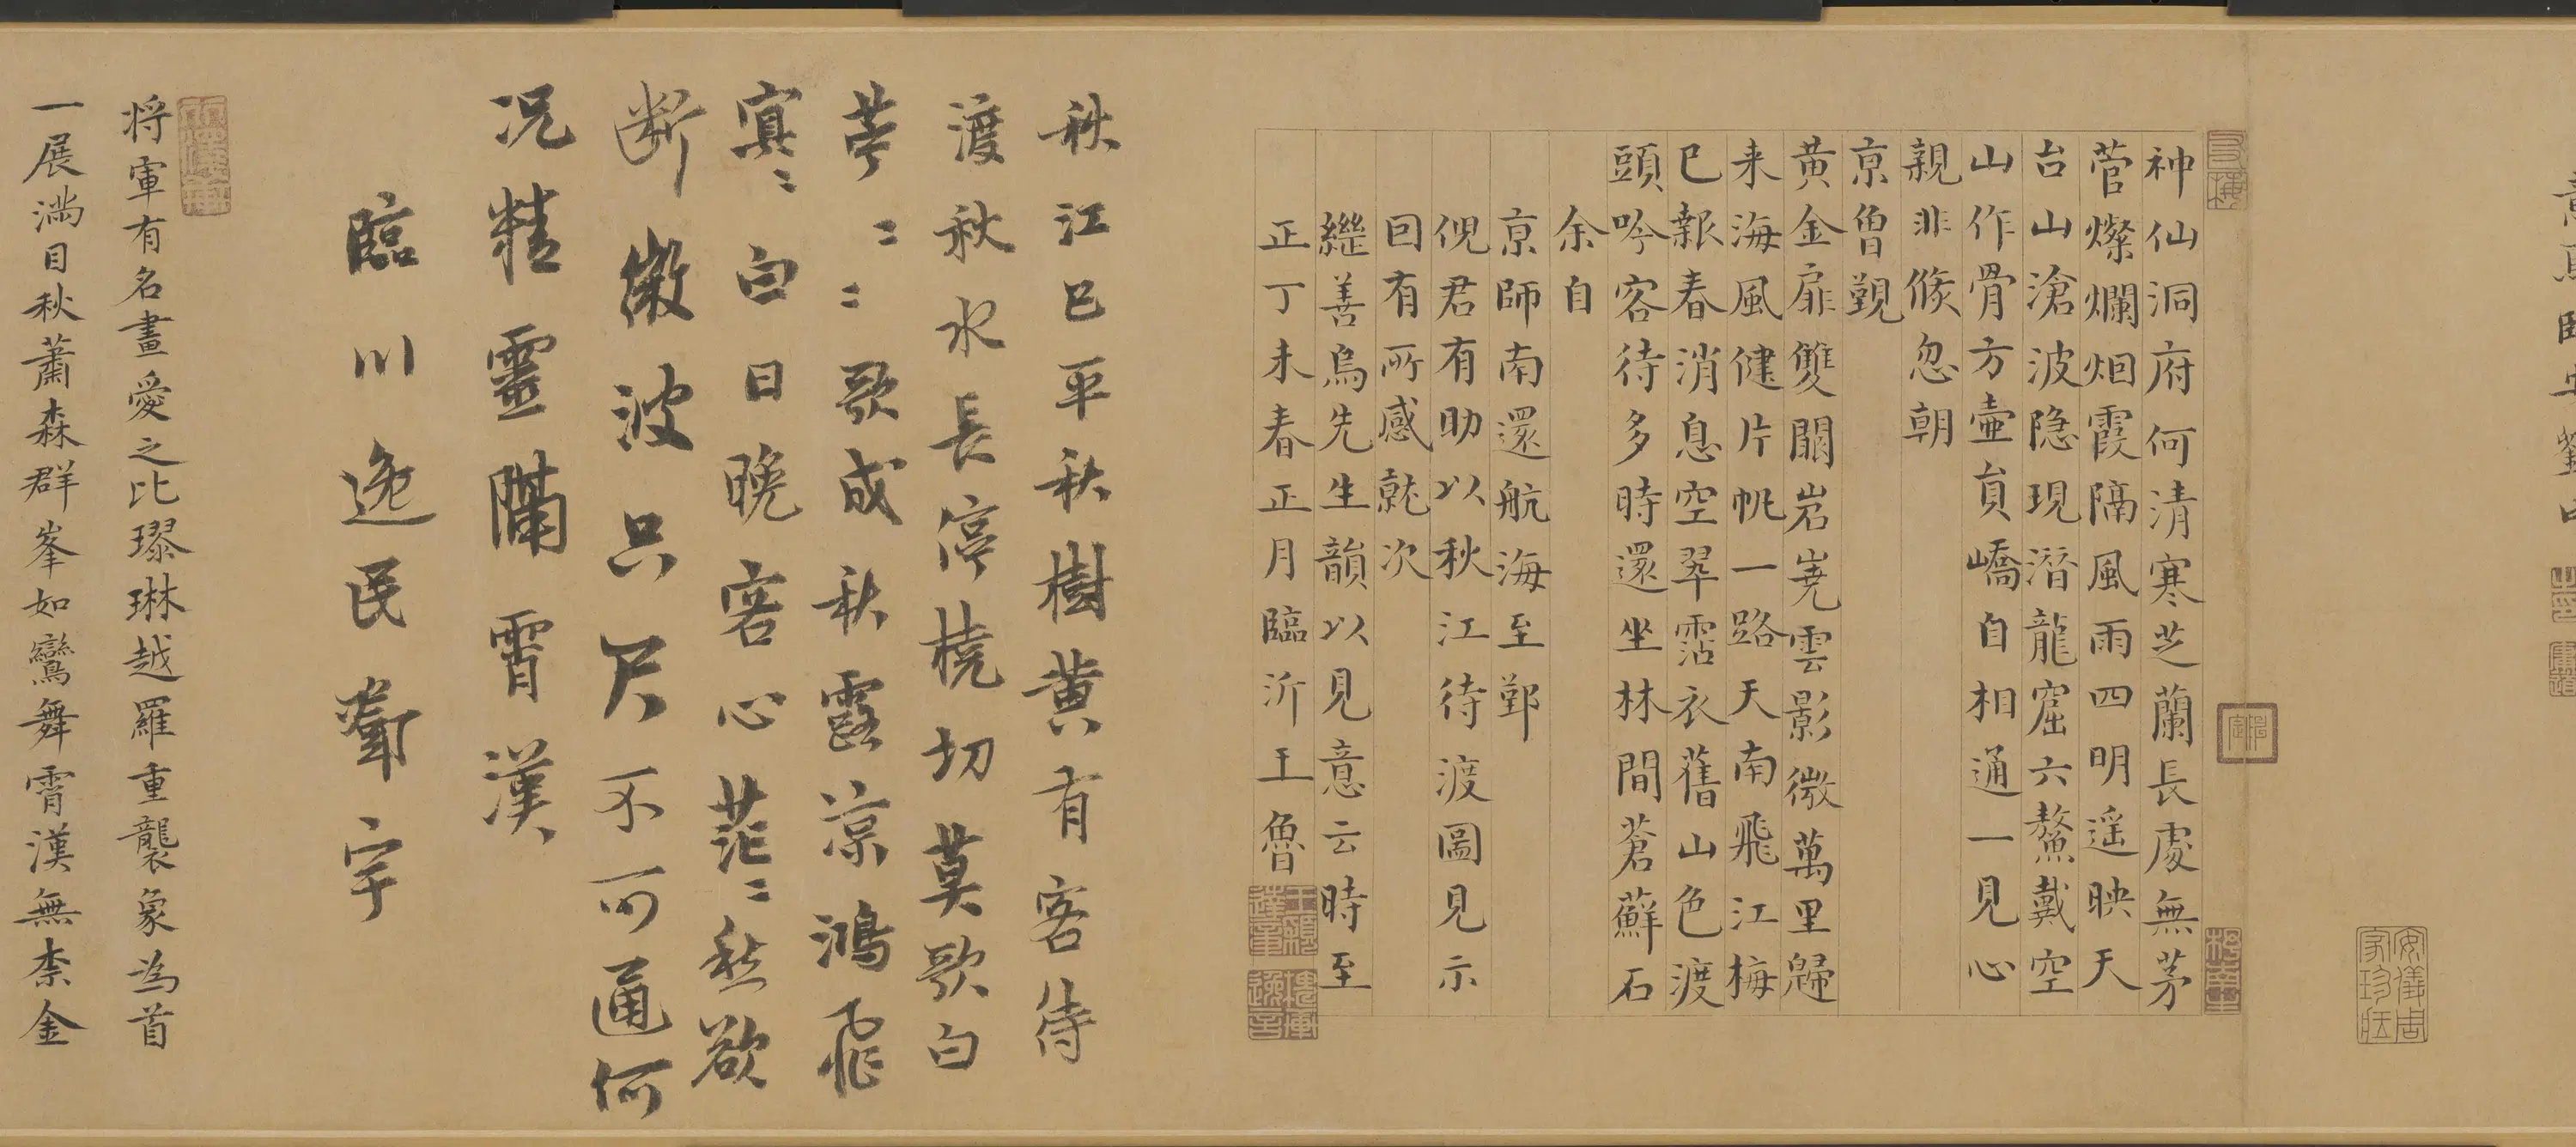 神仙洞府何清寒芝蘭長處無茅
菅燦爛烟霞隔風雨四明遥映天
台山滄波隐現潛龍窟六鰲戴空
山作骨方壷員嶠自相通一見心
親非倐忽朝
京魯覲
黃金扉雙闕岩嶤雲影微萬里歸
来海風健片帆一路天南飛江梅
已報春消息空翠霑衣舊山色渡
頭吟客待多時還坐林間蒼蘚石
余自
京師南還航海至鄞
倪君有助以秋江待渡圖見示
囙有所感就次
繼善烏先生韻以見意云時至
正丁未春正月臨沂王魯
秋江已平秋樹黃有客待
渡秋水長停橈切莫歌白
苧〻〻歌成秋露凉鴻飛
寞〻白日晚客心茫〻愁欲
断微波只尺不可通何
况精靈隔霄漢
臨川逸民 宇
将軍有名畫愛之比璆琳越羅重襲象為首
一展满目秋蕭森群峯如鸞舞霄漢無柰金